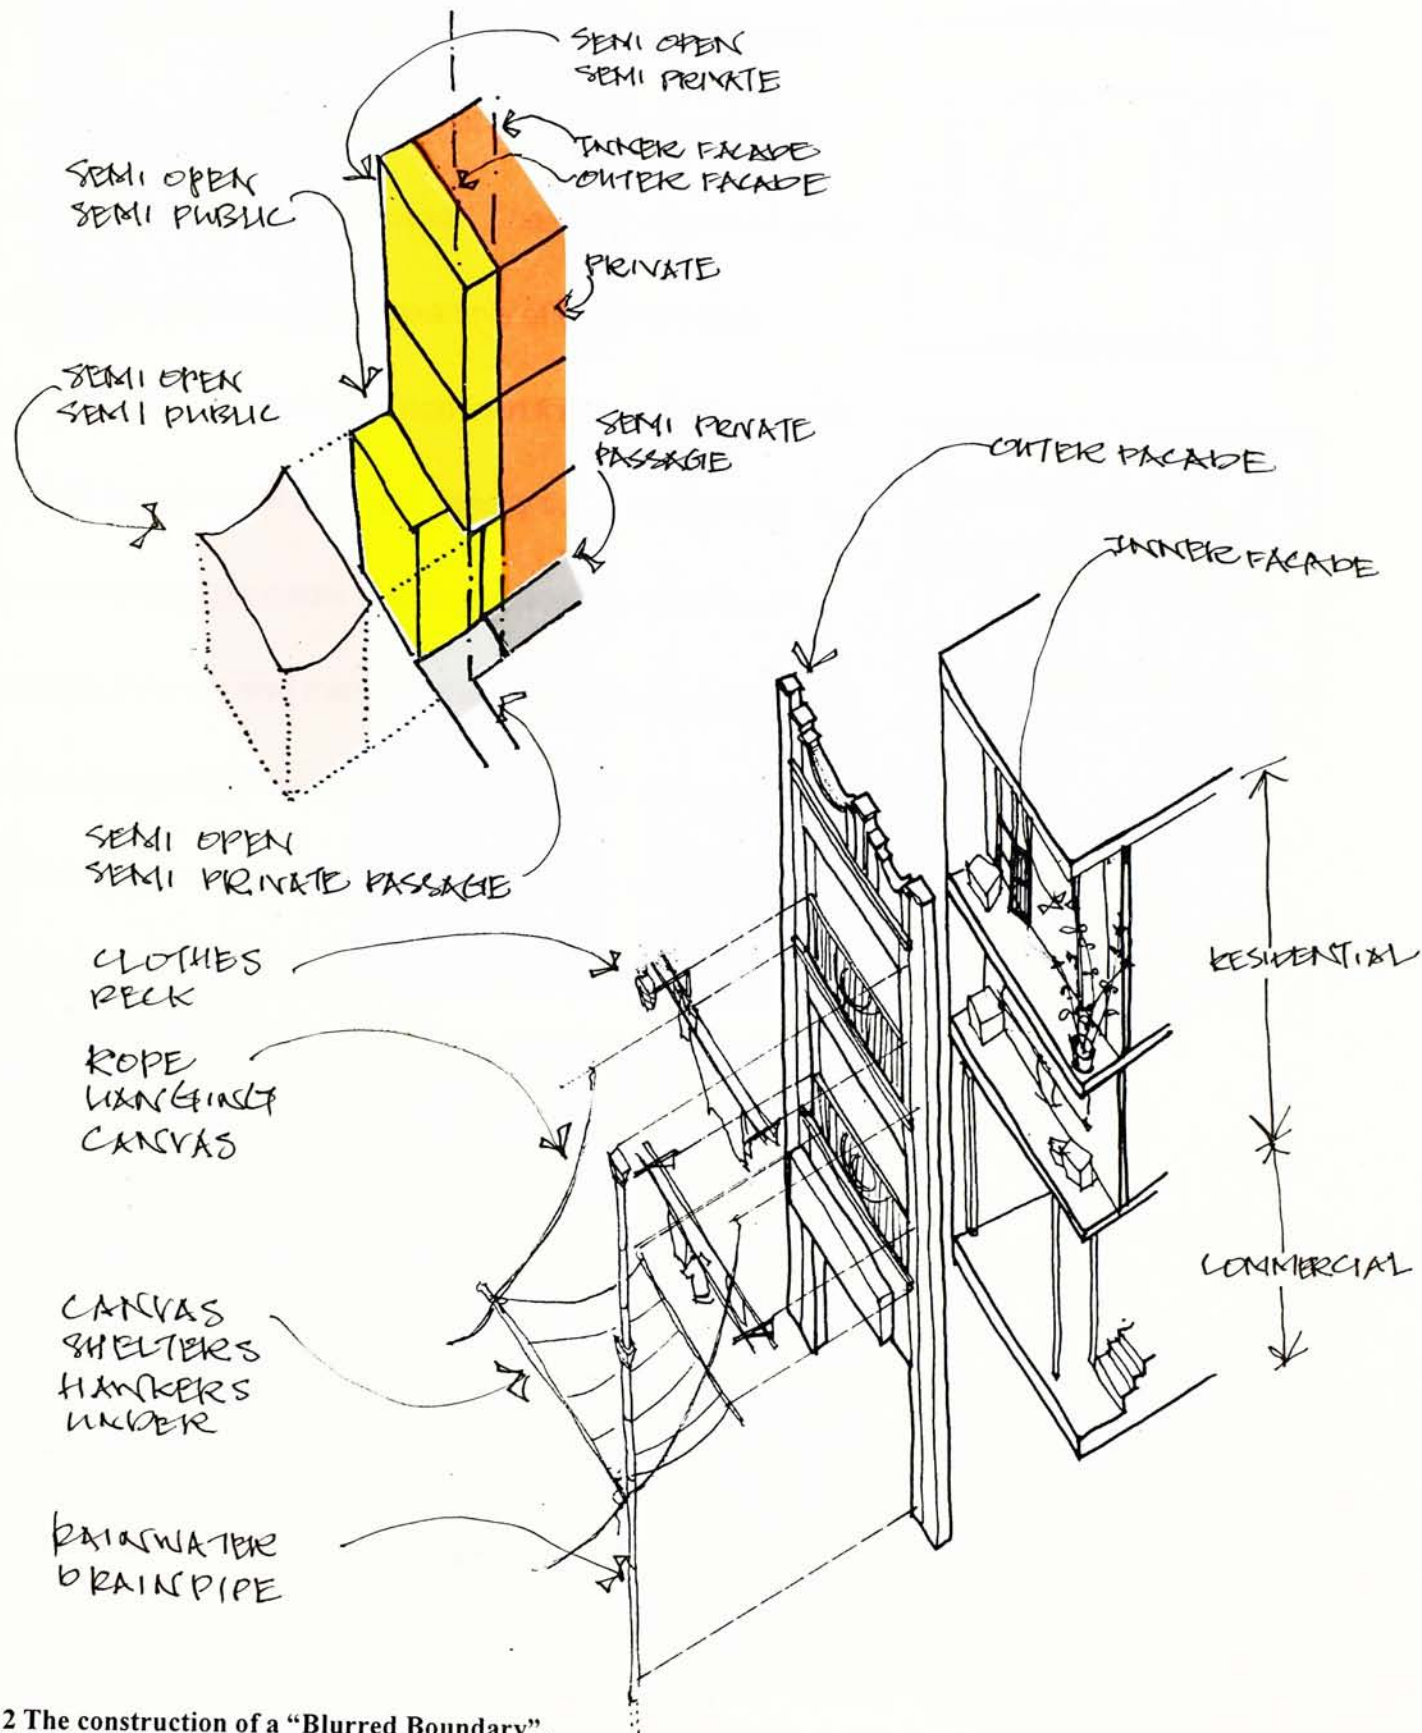 SEMI OPEN
SEMI PRIVATE
INNER FACADE
OUTER FACADE
SEMI OPEN
SEMI PUBLIC
PRIVATE
SEMI OPEN
SEMI PUBLIC
SEMI PRIVATE
PASSAGE
OUTER FACADE
INNER FACADE
SEMI OPEN
SEMI PRIVATE PASSAGE
CLOTHES
RECK
RESIDENTIAL
ROPE
HANGING
CANVAS
COMMERCIAL
CANVAS
SHELTERS
HAWKERS
UNDER
RAINWATER
DRAINPIPE
2 The construction of a “Blurred Boundary”